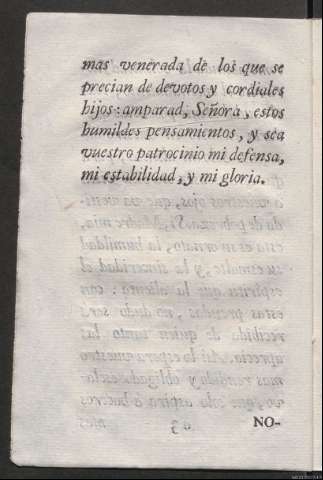 mas venerada de los que se
precian de devotos y cordiales
hijos: amparad, Señora, estos
humildes pensamientos, y sea
vuestro patrocinio mi defensa,
mi estabilidad, y mi gloria.
NO-